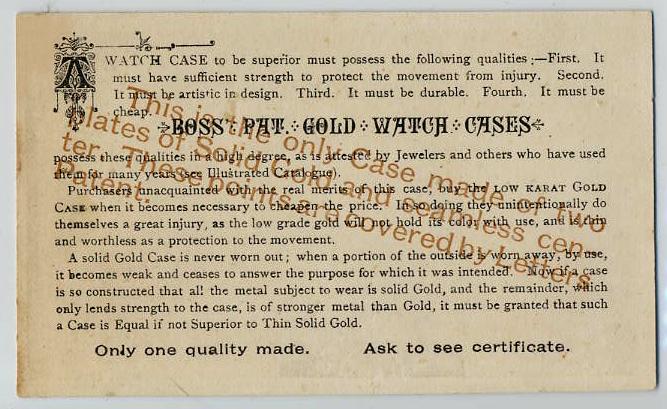 A WATCH CASE to be superior must possess the following qualities;—First. It
must have sufficient strength to protect the movement from injury. Second.
It must be artistic in design. Third. It must be durable. Fourth. It must be
cheap.
BOSS' PAT. GOLD WATCH CASES
possess these qualities in a high degree, as is attested by Jewelers and others who have used
them for many years (see Illustrated Catalogue).
Purchasers unacquainted with the real merits of this case, buy the LOW KARAT GOLD
CASE when it becomes necessary to cheapen the price. In so doing they unintentionally do
themselves a great injury, as the low grade gold will not hold its color with use, and is thin
and worthless as a protection to the movement.
A solid Gold Case is never worn out; when a portion of the outside is worn away, by use,
it becomes weak and ceases to answer the purpose for which it was intended. Now if a case
is so constructed that all the metal subject to wear is solid Gold, and the remainder, which
only lends strength to the case, is of stronger metal than Gold, it must be granted that such
a Case is Equal if not Superior to Thin Solid Gold.
Only one quality made. Ask to see certificate.
This is the only Case made of two
plates of Solid Gold and seamless cen-
ter. These points are covered by Letters
Patent.